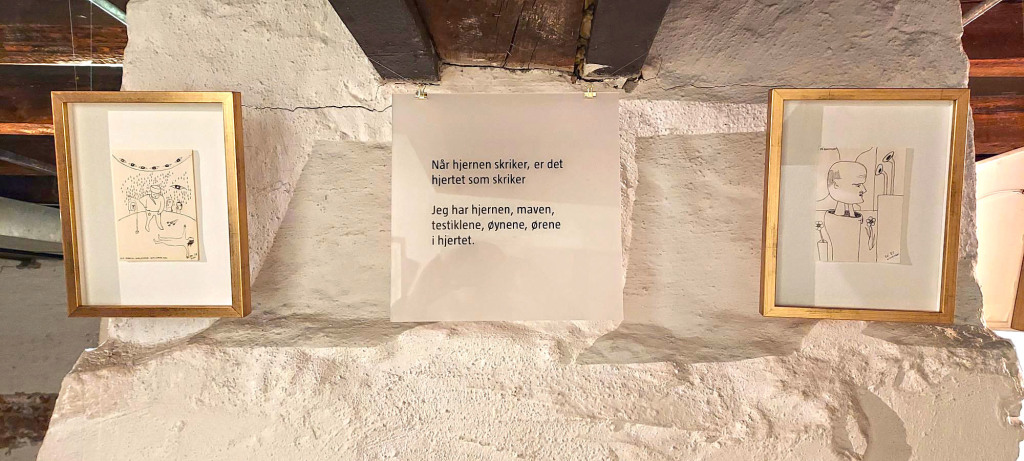 Når hjernen skriker, er det
hjertet som skriker
Jeg har hjernen, maven,
testiklene, øynene, ørene
i hjertet.